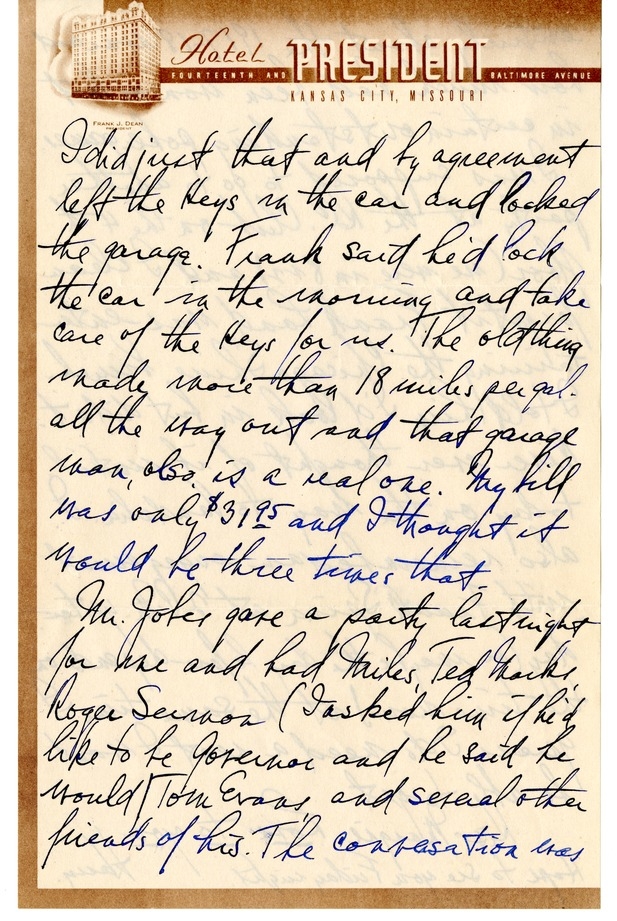 Hotel PRESIDENT
FOURTEENTH AND BALTIMORE AVENUE
KANSAS CITY, MISSOURI
FRANK J. DEAN
PRESIDENT
I did just that and by agreement
left the keys in the car and locked
the garage. Frank said he'd lock
the car in the morning and take
care of the keys for us. The old thing
made more than 18 miles per gal.
all the way out and that garage
man, also, is a real one. My bill
was only $31.95 and I thought it
would be three times that.
Mr. Jobes gave a party last night
for me and had Miles, Ted Marks,
Roger Sermon (I asked him if he'd
like to be Governor and he said he
would) Tom Evans, and several other
friends of his. The conversation was